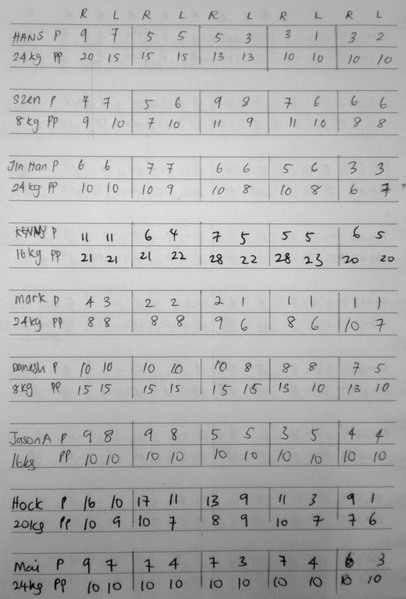 R L R L R L R L R L
HANS P 9 7 5 5 5 3 3 1 3 2
24kg PP 20 15 15 15 13 13 10 10 10 10
Szen P 7 7 5 6 9 8 7 6 6 6
8kg PP 9 10 7 10 11 9 11 10 8 8
Jin Han P 6 6 7 7 6 6 5 6 3 3
24kg PP 10 10 10 9 10 8 10 8 6 7
KENNY P 11 11 6 4 7 5 5 5 6 5
16kg PP 21 21 21 22 28 22 28 23 20 20
Mark P 4 3 2 2 2 1 1 1 1 1
24kg PP 8 8 8 8 9 6 8 6 10 7
Danesh P 10 10 10 10 10 8 8 8 7 5
8kg PP 15 15 15 15 15 15 13 10 13 10
Jason A P 9 8 9 8 5 5 3 5 4 4
16kg PP 10 10 10 10 10 10 10 10 10 10
Hock P 16 10 17 11 13 9 11 3 9 1
20kg PP 10 9 10 7 8 9 10 7 7 6
Mai P 9 7 7 4 7 3 7 4 6 3
24kg PP 10 10 10 10 10 10 10 10 10 10